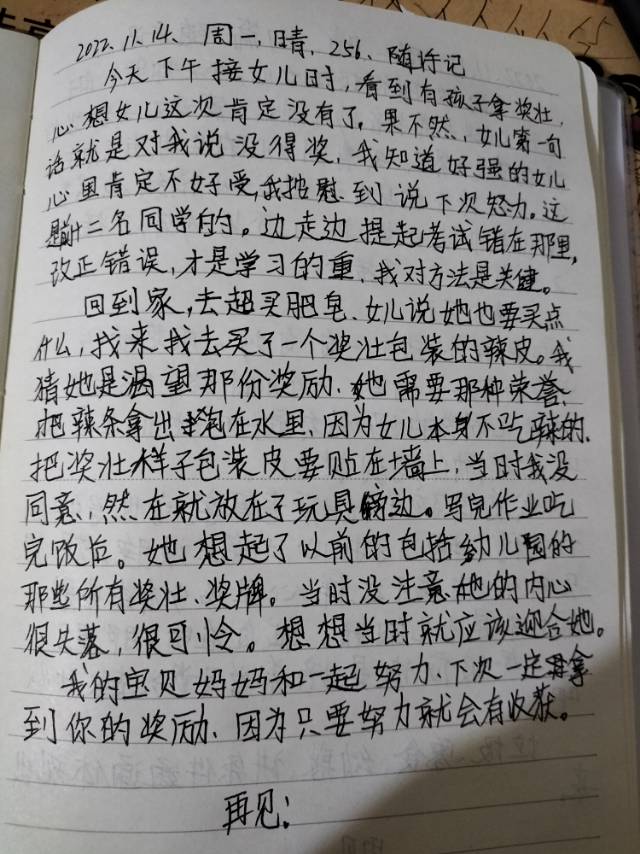 2022.11.14、周一,晴,256、随许记
今天下午接女儿时,看到有孩子拿奖壮,
心想女儿这次肯定没有了。果不然,女儿第一句
话就是对我说没得奖,我知道好强的女儿
心里肯定不好受,我按慰到说下次努力。这
是前十二名同学的。边走边提起考试错在那里,
改正错误,才是学习的重、我对方法是关键。
回到家,去超买肥皂、女儿说她也要买点
什么,找来找去买了一个奖壮包装的辣皮。我
猜她是渴望那份奖励、她需要那种荣誉、
把辣条拿出泡在水里、因为女儿本身不吃辣的、
把奖壮样子包装皮要贴在墙上,当时我没
同意,然在就放在了玩具镑边。写完作业吃
完饭后。她想起了以前的包括幼儿园的
那些所有奖壮、奖牌。当时没注意她的内心
很失落,很可怜。想想当时就应该迎合她。
我的宝贝妈妈和一起努力、下次一定再拿
到你的奖励、因为只要努力就会有收获。
再见!